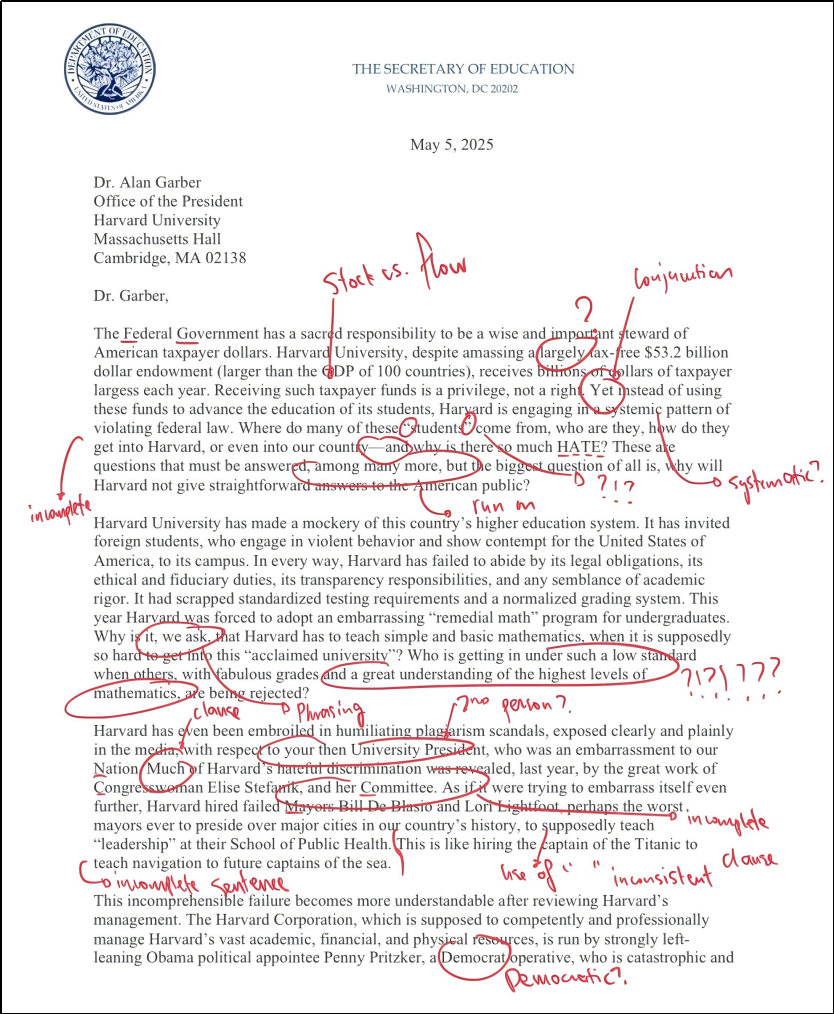 DEPARTMENT OF EDUCATION
UNITED STATES OF AMERICA
THE SECRETARY OF EDUCATION
WASHINGTON, DC 20202
May 5, 2025
Dr. Alan Garber
Office of the President
Harvard University
Massachusetts Hall
Cambridge, MA 02138
Stock vs. flow
Conjunction
Dr. Garber,
?
The Federal Government has a sacred responsibility to be a wise and important steward of
American taxpayer dollars. Harvard University, despite amassing a largely tax-free $53.2 billion
dollar endowment (larger than the GDP of 100 countries), receives billions of dollars of taxpayer
largess each year. Receiving such taxpayer funds is a privilege, not a right. Yet instead of using
these funds to advance the education of its students, Harvard is engaging in a systemic pattern of
violating federal law. Where do many of these “students” come from, who are they, how do they
get into Harvard, or even into our country—and why is there so much HATE? These are
questions that must be answered, among many more, but the biggest question of all is, why will
Harvard not give straightforward answers to the American public?
?!?
systematic?
incomplete
run on
Harvard University has made a mockery of this country’s higher education system. It has invited
foreign students, who engage in violent behavior and show contempt for the United States of
America, to its campus. In every way, Harvard has failed to abide by its legal obligations, its
ethical and fiduciary duties, its transparency responsibilities, and any semblance of academic
rigor. It had scrapped standardized testing requirements and a normalized grading system. This
year Harvard was forced to adopt an embarrassing “remedial math” program for undergraduates.
Why is it, we ask, that Harvard has to teach simple and basic mathematics, when it is supposedly
so hard to get into this “acclaimed university”? Who is getting in under such a low standard
when others, with fabulous grades and a great understanding of the highest levels of
mathematics, are being rejected?
?!?!???
clause
Phrasing
2nd person?
Harvard has even been embroiled in humiliating plagiarism scandals, exposed clearly and plainly
in the media, with respect to your then University President, who was an embarrassment to our
Nation. Much of Harvard’s hateful discrimination was revealed, last year, by the great work of
Congresswoman Elise Stefanik, and her Committee. As if it were trying to embarrass itself even
further, Harvard hired failed Mayors Bill De Blasio and Lori Lightfoot, perhaps the worst
mayors ever to preside over major cities in our country’s history, to supposedly teach
“leadership” at their School of Public Health. This is like hiring the captain of the Titanic to
teach navigation to future captains of the sea.
incomplete
clause
incomplete sentence
Use of “ ” inconsistent
This incomprehensible failure becomes more understandable after reviewing Harvard’s
management. The Harvard Corporation, which is supposed to competently and professionally
manage Harvard’s vast academic, financial, and physical resources, is run by strongly left-
leaning Obama political appointee Penny Pritzker, a Democrat operative, who is catastrophic and
Democratic?